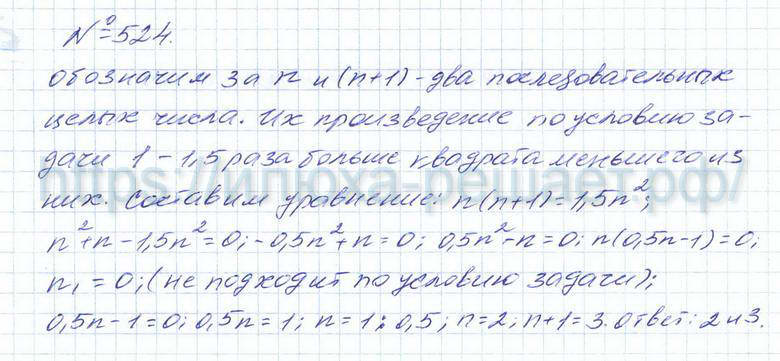 № 524.
обозначим за n и (n+1) - два последовательных
целых числа. Их произведение по условию за-
дачи 1 - 1,5 раза больше квадрата меньшего из
https://илюха-решает.рф/
них. Составим уравнение: n(n+1)=1,5n²;
n²+n-1,5n²=0; -0,5n²+n=0; 0,5n²-n=0; n(0,5n-1)=0;
n₁=0; (не подходит по условию задачи);
0,5n-1=0; 0,5n=1; n=1:0,5; n=2; n+1=3. Ответ: 2 и 3.